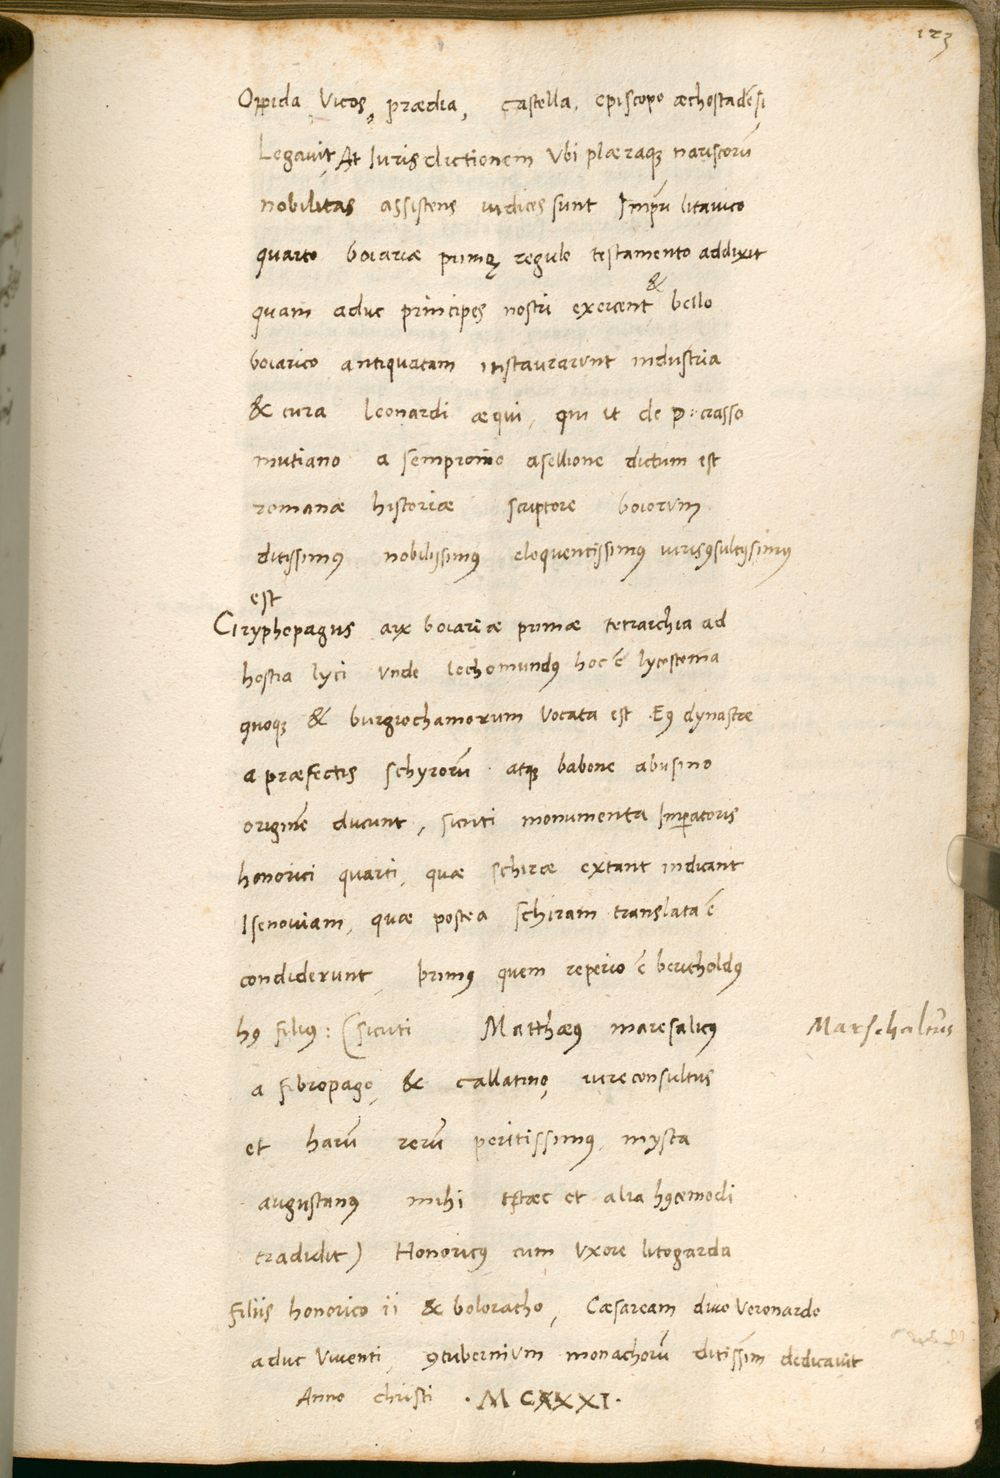 123
Oppida Vicos, prædia, castella, episcopo æchostadēsi
Legavit, At Iurisdictionem Vbi plæraqȝ nariscorū
nobilitas assistens iudices sunt Impr̄i litavico
quarto boiariæ primæ regule testamento addixit
&
quam aduc principes nostri exercent bello
boiarico antiquatam instaurarunt industria
& cura leonardi æqui, qui ut de p: crasso
mutiano a sempronio asellione dictum est
romanæ historiæ scriptore boiorum
ditissimꝰ nobilissimꝰ eloquentissimꝰ iurisꝯsultissimꝰ
est
Ciryphopagus arx boiariæ primæ tetrarchia ad
hostia lyci Vnde lechomundꝰ hoc ē lycostoma
quoqȝ & burgiochamorum Vocata est. Eꝰ dynastæ
a præfectis schyrorū atqȝ babone abusino
originē ducunt, sicuti monumenta Imperatoris
honorici quarti, quæ schiræ extant indicant
Isenoviam, quæ postea schiram translata ē
condiderunt, primꝰ quem reperio ē bertholdꝰ
hꝰ filiꝰ: (sicuti Matthæꝰ maresalicꝰ
Marschalcus
a fibropago, & callatinꝰ, iureconsultus
et harū rerū peritissimꝰ, mysta
augustanꝰ mihi et alia hꝰcemodi
tradidit) Honoricꝰ cum Vxore litogarda
filiis honorico ii & boloratho, Cæsaream divo Veronardo
aduc Viventi, ꝯtubernium monachorū ditissim̄ dedicavit
Anno christi . M CXXXI .